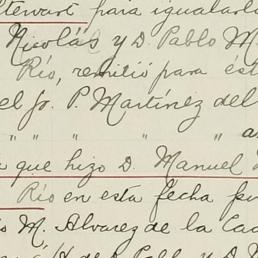 Stewart para igualarl
Nicolás y D. Pablo M.
Río, remitió para ést
el Sr. P. Martínez del
" " " " " a
que hizo D. Manuel
Río en esta fecha
M. Alvarez de la Ca